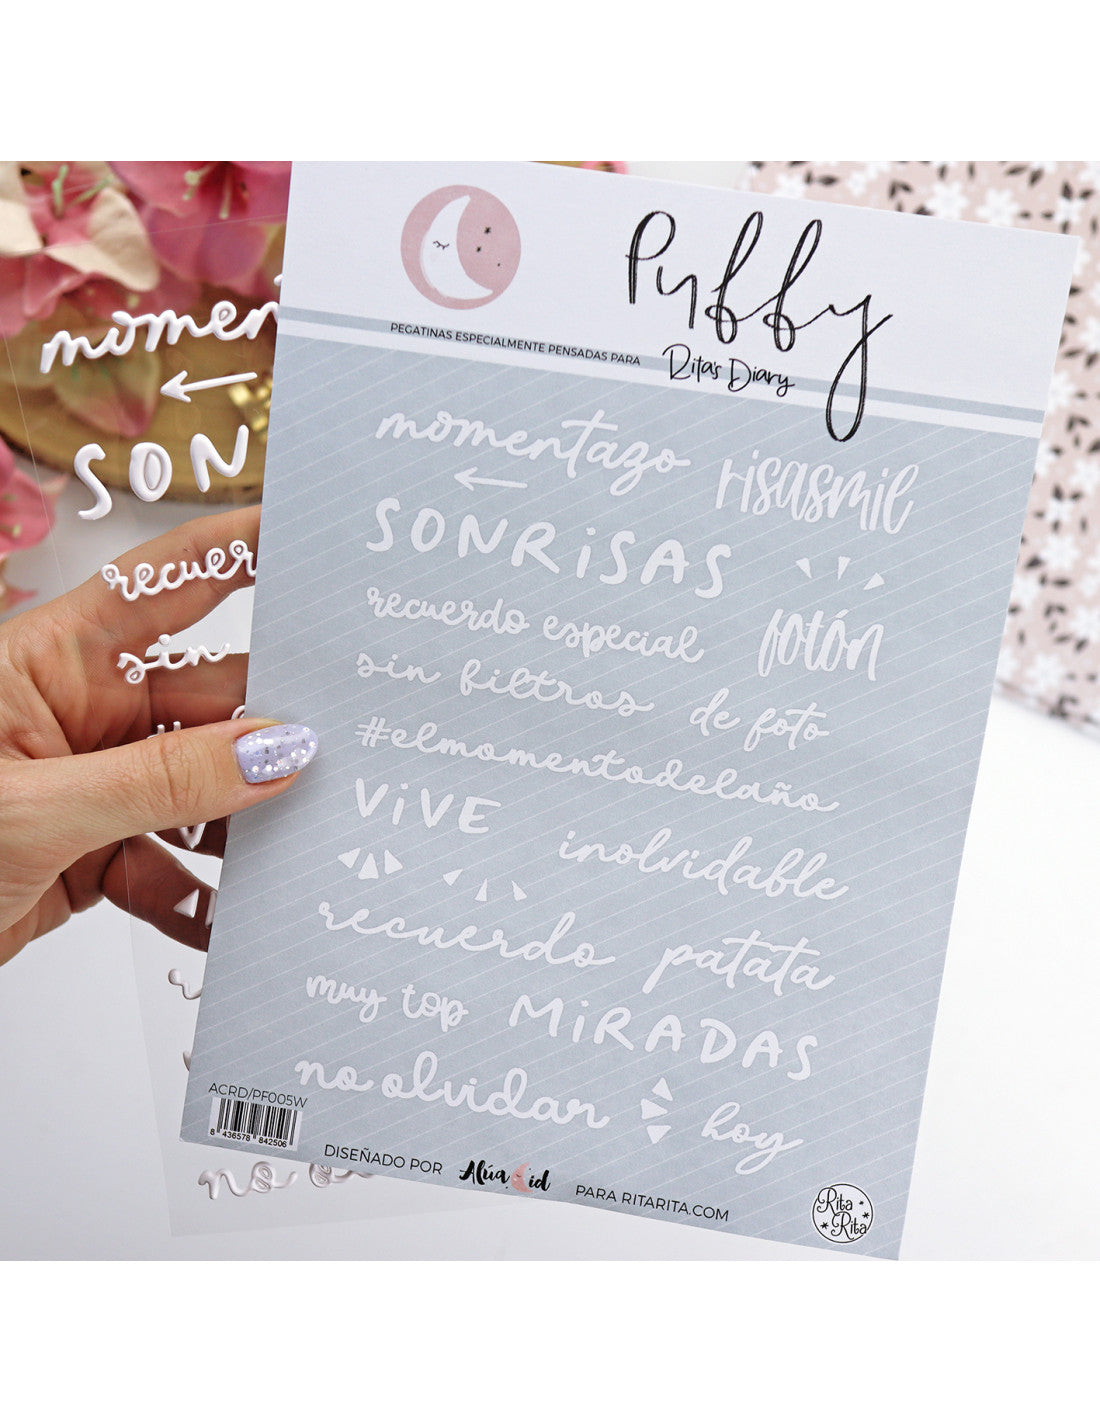 Puffy
PEGATINAS ESPECIALMENTE PENSADAS PARA Rita's Diary
momentazo
risasmil
SONRiSAS
recuerdo especial
fotón
sin filtros
de foto
#elmomentodelaño
ViVE
inolvidable
recuerdo
patata
muy top
MiRADAS
no olvidar
hoy
ACRD/PF005W
8 436578 842506
DISEÑADO POR Alúa Cid PARA RITARITA.COM
Rita
Rita
momen
SON
recuer
sin
no